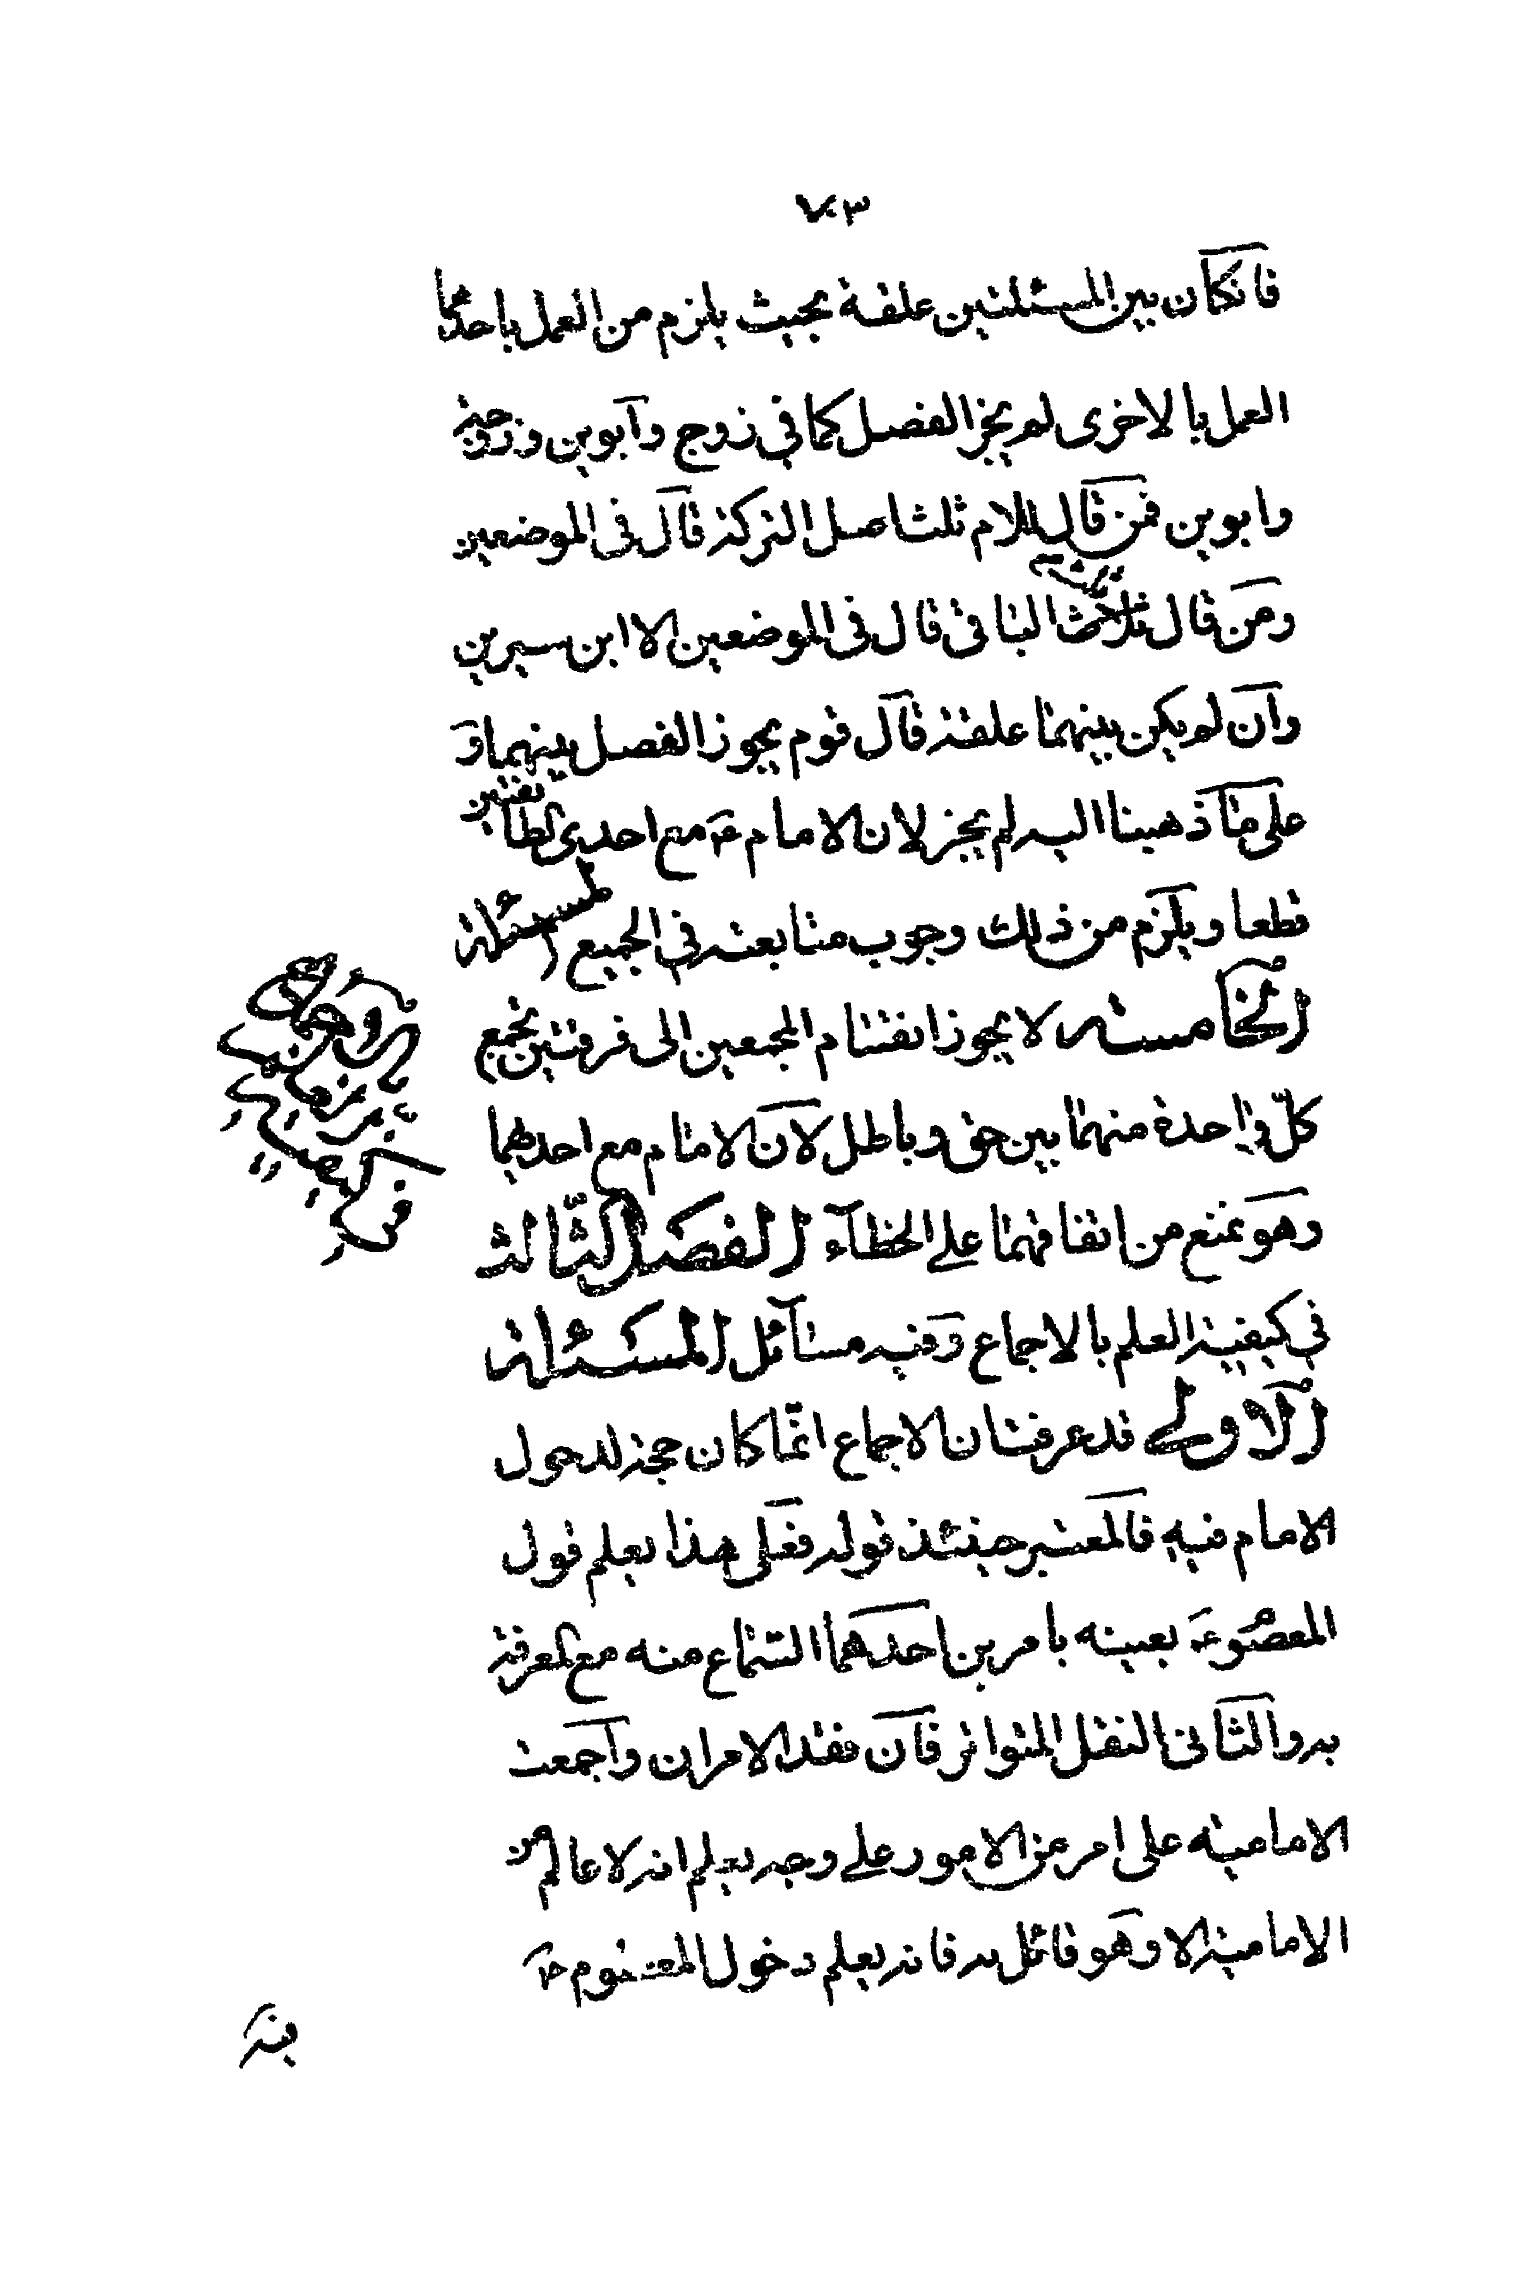 ٧٠٣
فان كان بين المسئلتين علقة بحيث يلزم من العمل باحدهما
العمل بالاخرى لم يجز الفصل كما في زوج وابوين وزوجة
وابوين فمن قال للام ثلث اصل التركة قال فى الموضعين
ومن قال ثلث الباقى قال فى الموضعين الا ابن سيرين
وان لم يكن بينهما علقة قال قوم يجوز الفصل بينهما و
على ما ذهبنا اليه لم يجز لان الامام ع مع احدى الطائفتين
قطعا ويلزم من ذلك وجوب متابعته في الجميع المسئلة
الخامسة لا يجوز انقسام المجمعين الى فرقتين تجمع
كل واحدة منهما بين حق وباطل لان الامام مع احدهما
وهو يمنع من اتفاقهما على الخطاء الفصل الثالث
في كيفية العلم بالاجماع وفيه مسائل المسئلة
الاولى قد عرفت ان الاجماع انما كان حجة لدخول
الامام فيه فالمعتبر حينئذ قوله فعلى هذا يعلم قول
المعصوم ع بعينه بامرين احدهما السماع منه مع المعرفة
به والثانى النقل المتواتر فان فقد الامران واجمعت
الامامية على امر من الامور على وجه يعلم انه لا عالم من
الامامية الا وهو قائل به فانه يعلم دخول المعصوم ح
فيه